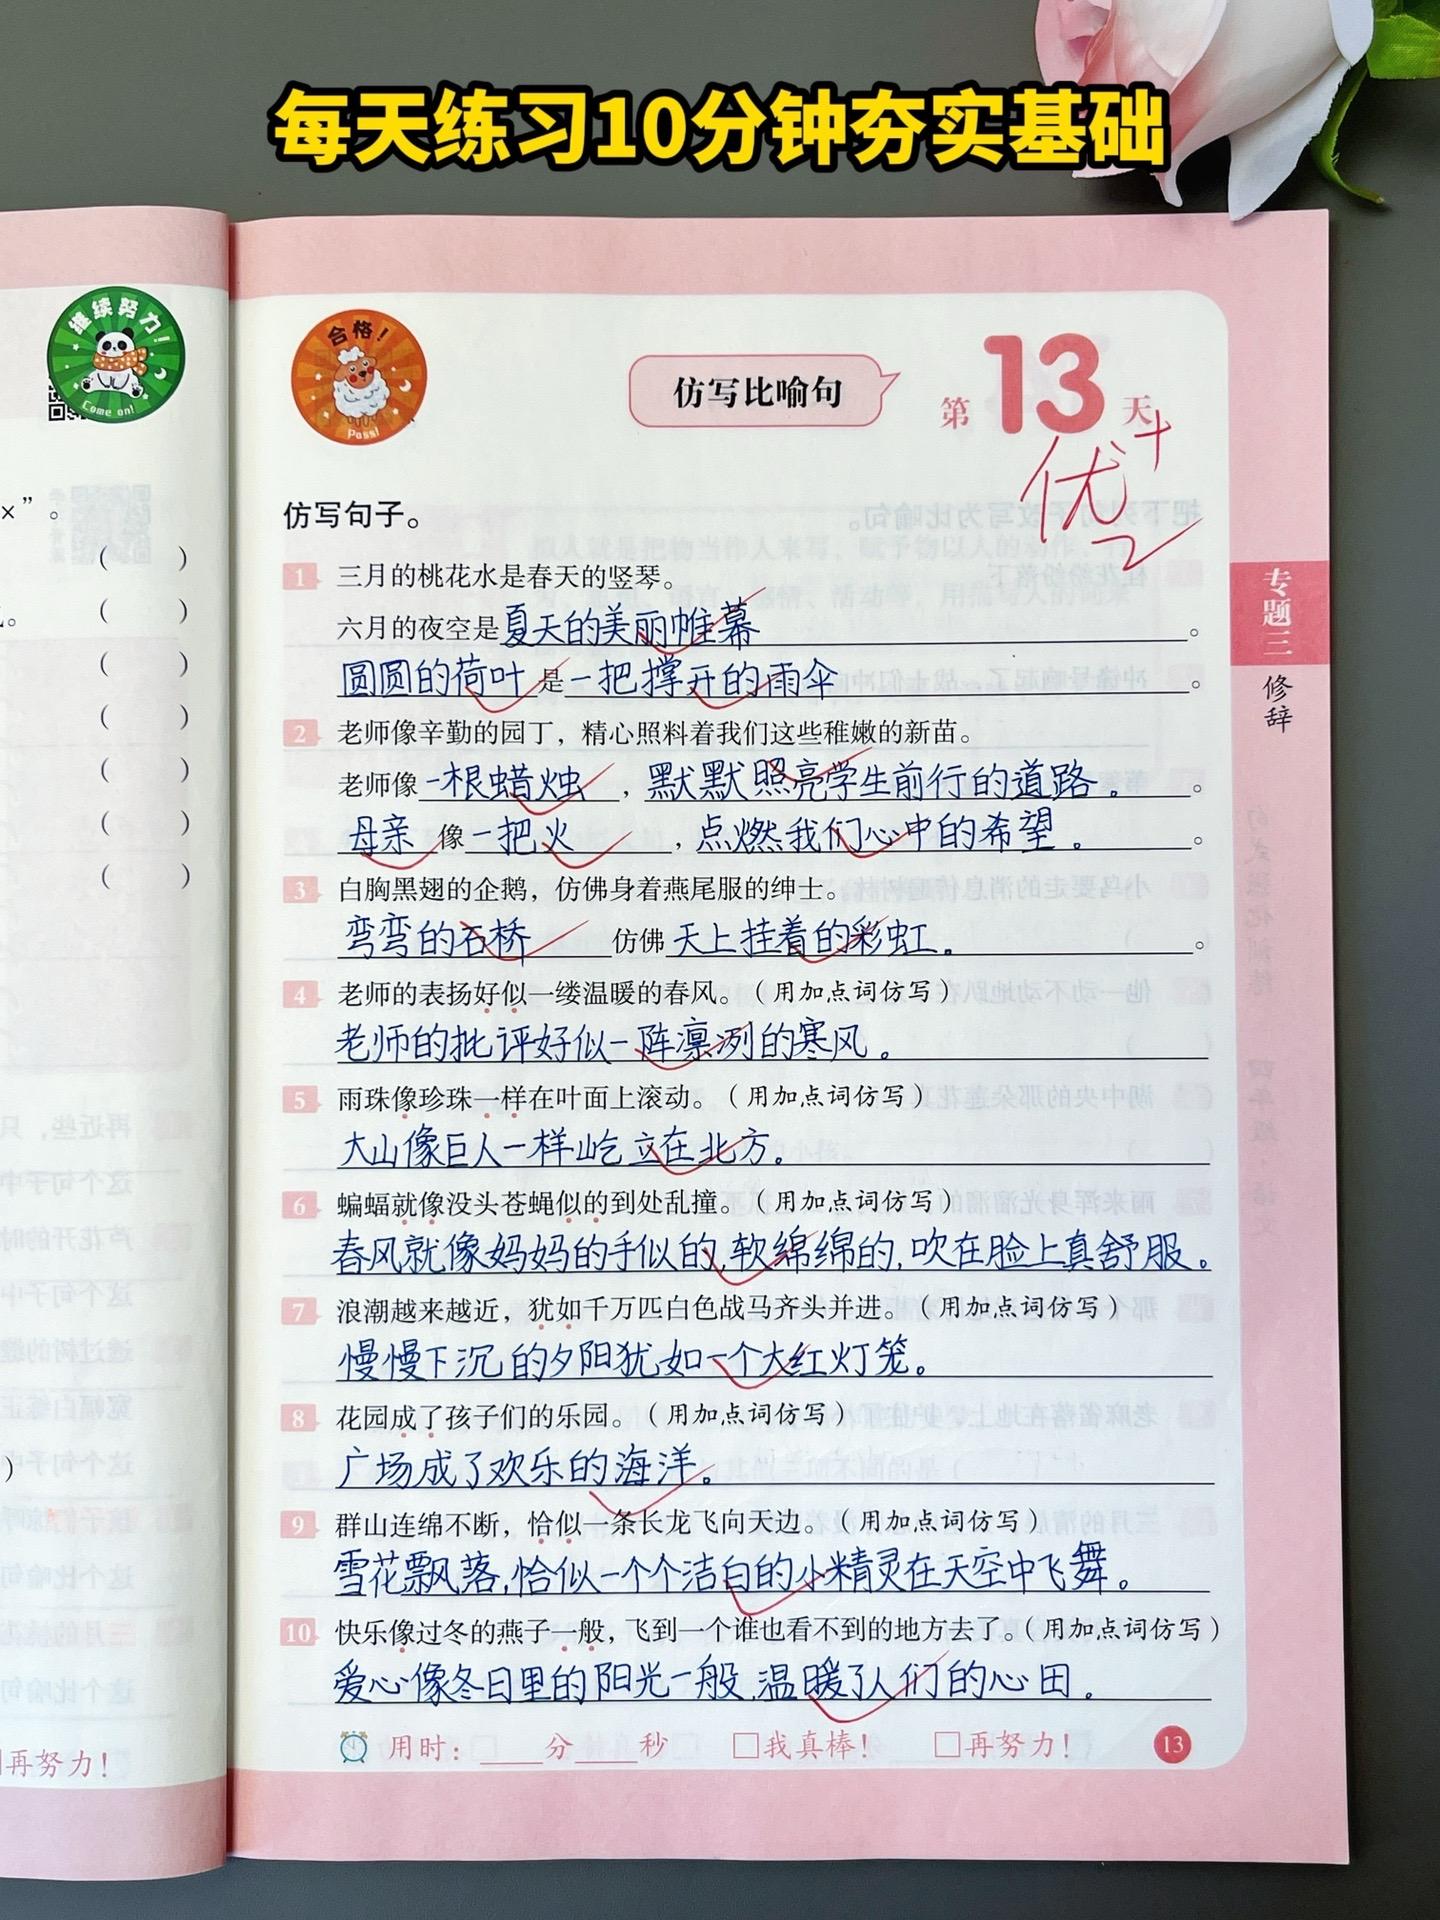 每天练习10分钟夯实基础
继续努力!
Come on!
×”。
( )
( )
( )
( )
( )
( )
( )
)
再努力!
合格!
Pass!
仿写比喻句
第13天
优+
仿写句子。
1 三月的桃花水是春天的竖琴。
六月的夜空是夏天的美丽帷幕。
圆圆的荷叶是一把撑开的雨伞。
2 老师像辛勤的园丁，精心照料着我们这些稚嫩的新苗。
老师像一根蜡烛，默默照亮学生前行的道路。。
母亲像一把火，点燃我们心中的希望。。
3 白胸黑翅的企鹅，仿佛身着燕尾服的绅士。
弯弯的石桥仿佛天上挂着的彩虹。。
4 老师的表扬好似一缕温暖的春风。(用加点词仿写)
老师的批评好似一阵凛冽的寒风。
5 雨珠像珍珠一样在叶面上滚动。(用加点词仿写)
大山像巨人一样屹立在北方。
6 蝙蝠就像没头苍蝇似的到处乱撞。(用加点词仿写)
春风就像妈妈的手似的,软绵绵的,吹在脸上真舒服。
7 浪潮越来越近，犹如千万匹白色战马齐头并进。(用加点词仿写)
慢慢下沉的夕阳犹如一个大红灯笼。
8 花园成了孩子们的乐园。(用加点词仿写)
广场成了欢乐的海洋。
9 群山连绵不断，恰似一条长龙飞向天边。(用加点词仿写)
雪花飘落,恰似一个个洁白的小精灵在天空中飞舞。
10 快乐像过冬的燕子一般，飞到一个谁也看不到的地方去了。(用加点词仿写)
爱心像冬日里的阳光一般,温暖了人们的心田。
用时：____分____秒 □我真棒! □再努力!
13
专题三
修辞